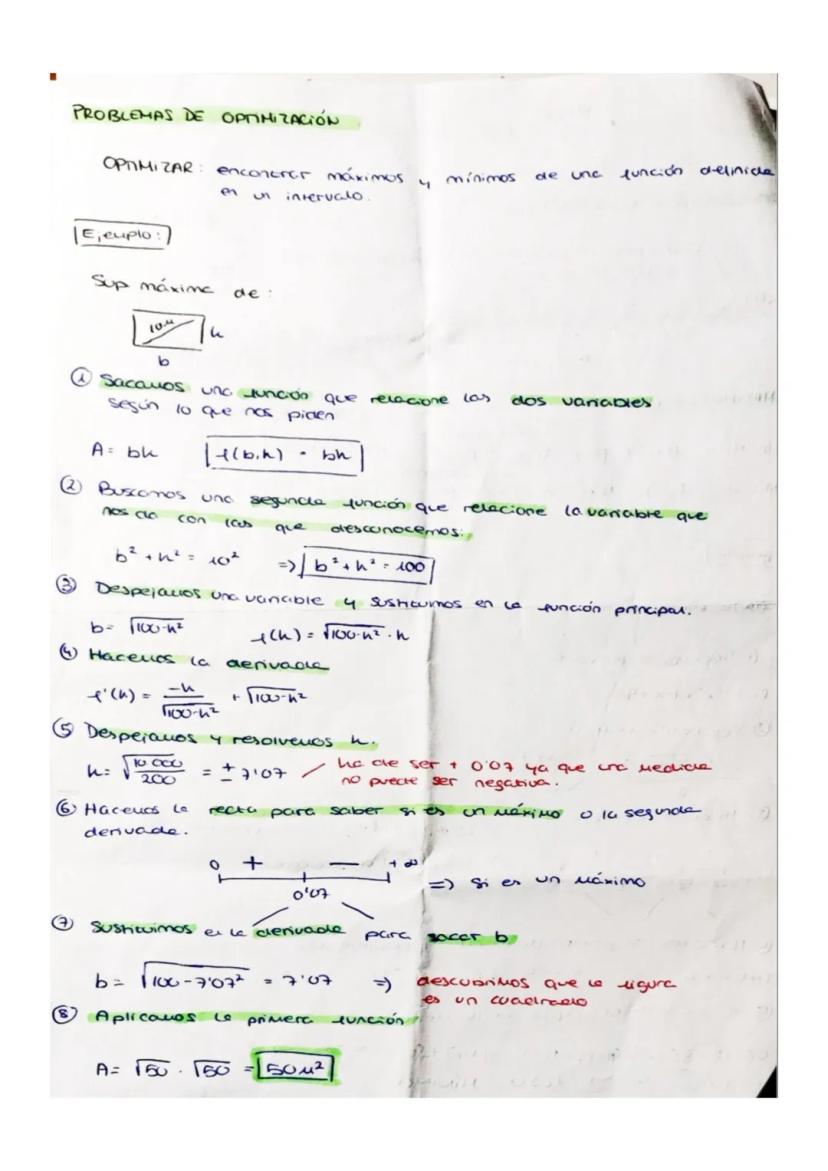 PROBLEMAS DE OPTIMIZACIÓN
OPTIMIZAR: encontrar máximos y mínimos de una función definida
en un intervalo.
Ejemplo:
Sup máxima de:
10M h
b
① Sacamos una función que relacione las dos variables
según lo que nos piden
A = bh f(b,h) = bh
② Buscamos una segunda función que relacione la variable que
nos da con las que desconocemos.
b² + h² = 10² => b² + h² = 100
③ Despejamos una variable y sustituimos en la función principal.
b = √100-h² f(h) = √100-h² · h
④ Hacemos la derivada
f'(h) = -h/√100-h² + √100-h²
⑤ Despejamos y resolvemos h.
h = √10 000/200 = ± 7'07 / ha de ser + 0'07 ya que una medida
no puede ser negativa.
⑥ Hacemos la recta para saber si es un máximo o la segunda
derivada.
0 + — +∞
0'07 => Si es un máximo
⑦ Sustituimos en la derivada para sacar b
b = √100-7'07² = 7'07 => descubrimos que la figura
es un cuadrado
⑧ Aplicamos la primera función
A = √50 · √50 = 50M²